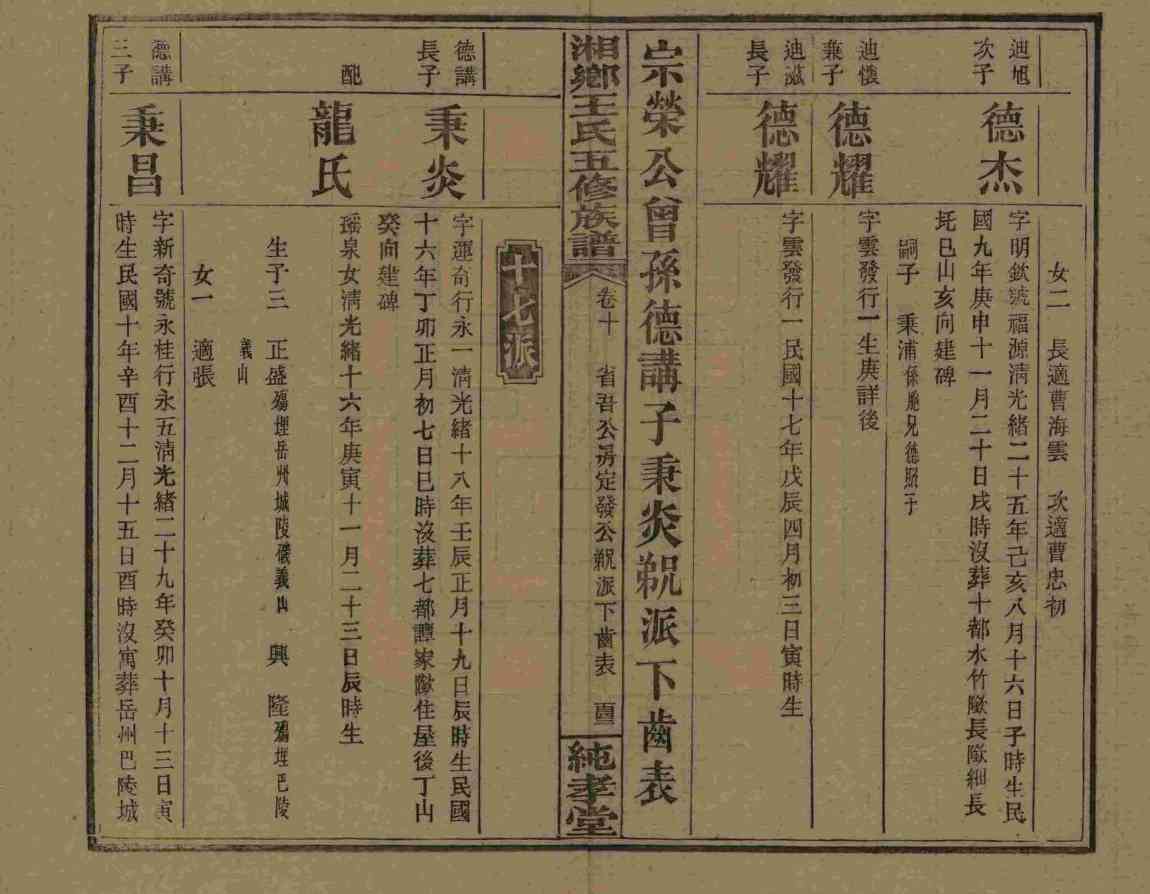 女二　長適曹海雲　次適曹忠初
迪旭次子　德杰　字明欽號福源淸光緒二十五年己亥八月十六日子時生民
國九年庚申十一月二十日戌時沒葬十都水竹
長
圫巳山亥向建碑
嗣子　秉浦係胞兄德照子
迪懷兼子　德耀　字雲發行一生庚詳後
迪滋長子　德耀　字雲發行一民國十七年戊辰四月初三日寅時生
宗榮公曾孫德講子秉炎
派下齒表
湘鄉王氏五修族譜　卷十　省吾公房定發公
派下齒表　純孝堂
十七派
德講長子　秉炎　字運奇行永一淸光緒十八年壬辰正月十九日辰時生民國
十六年丁卯正月初七日巳時沒葬七都譚家
住屋後丁山
癸向建碑
配　龍氏　瑶泉女淸光緒十六年庚寅十一月二十三日辰時生
生子三　正盛殤埋岳州城陵磯義山　興隆殤埋巴陵
義山
女一　適張
德講三子　秉昌　字新奇號永桂行永五淸光緒二十九年癸卯十月十三日寅
時生民國十年辛酉十二月十五日酉時沒寓葬岳州巴陵城